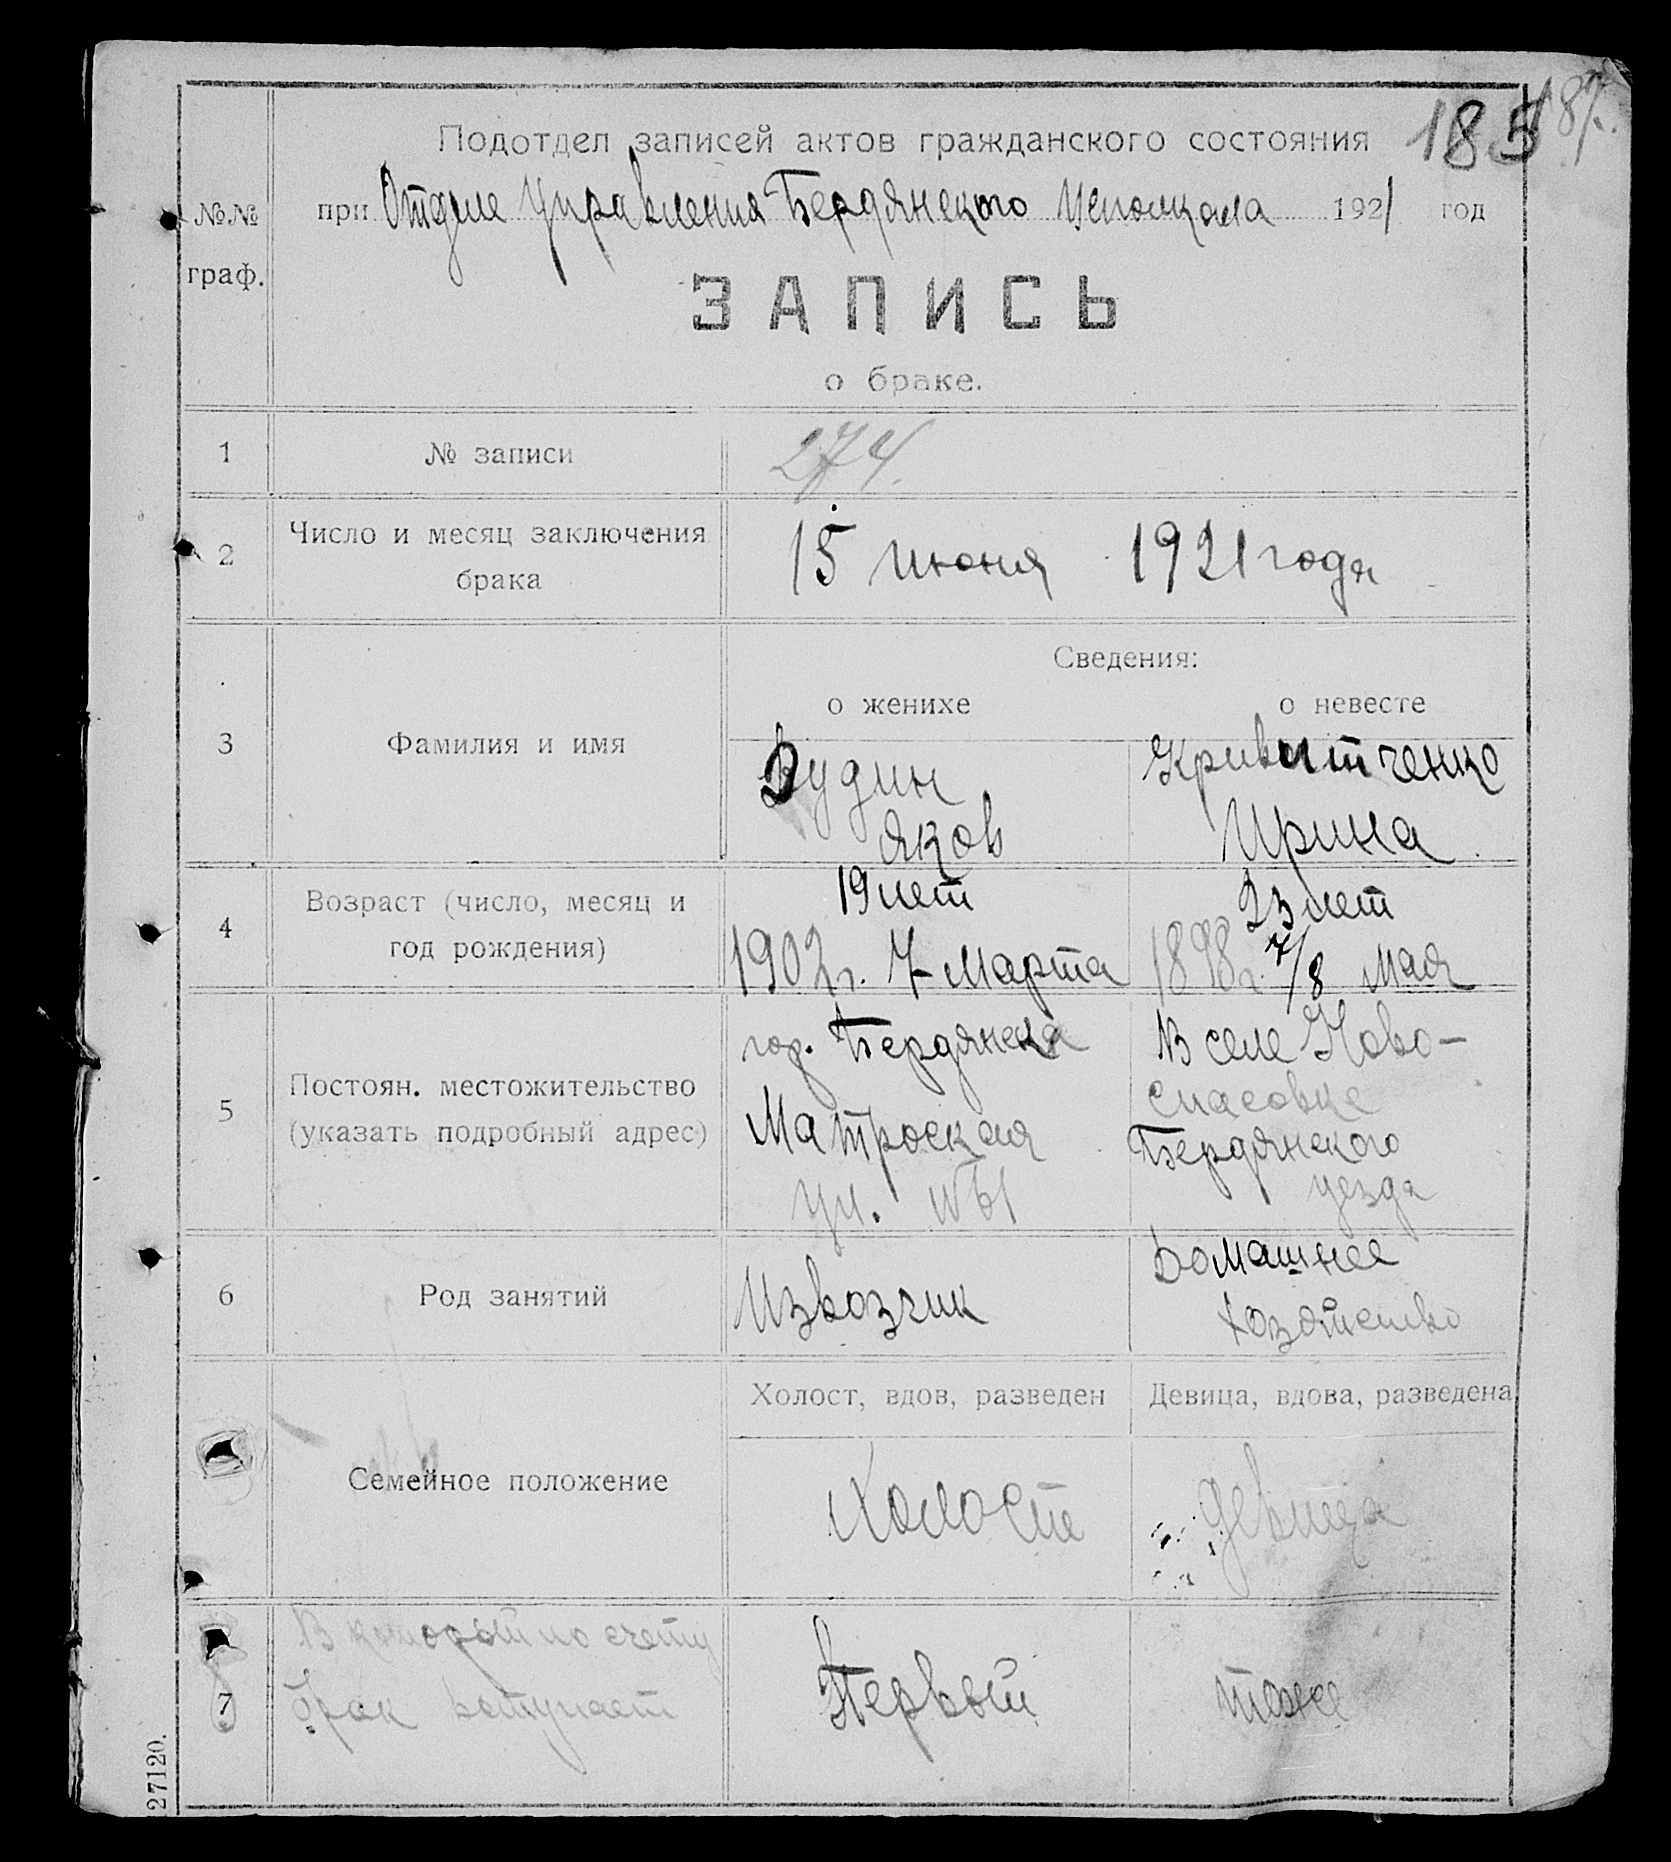 185 187.
Подотдел записей актов гражданского состояния
№№ граф.
при Отделе Управления Бердянского Исполкома 1921 год
ЗАПИСЬ
о браке.
1 № записи 274.
2 Число и месяц заключения брака 15 июня 1921 года
Сведения:
о женихе о невесте
3 Фамилия и имя
Яков
Ирина
4 Возраст (число, месяц и год рождения)
19 лет
1902 г. 7 марта
23 лет
1898 г. 7/8 мая
5 Постоян. местожительство
(указать подробный адрес)
гор. Бердянска
Матроская
ул.
В селе Ново-
спасовке
Бердянского
уезда
6 Род занятий
Извозчик
Домашнее
хозяйство
Холост, вдов, разведен Девица, вдова, разведена
Семейное положение
Холост девица
7 В который по счету
брак вступает
Первый тоже
27120.